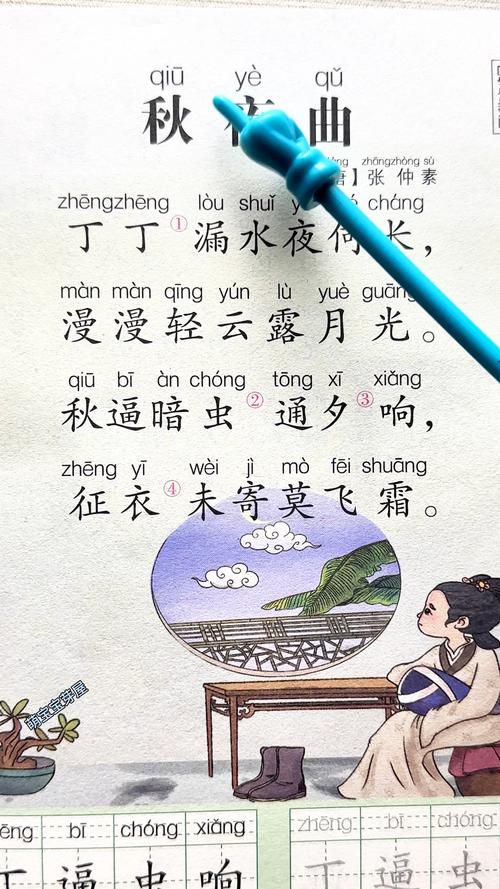 qiū yè qǔ
秋夜曲
zhāngzhòng sù
唐】张仲素
zhēngzhēng lòu shuǐ cháng
丁丁①漏水夜何长，
màn màn qīng yún lù yuè guāng
漫漫轻云露月光。
qiū bī àn chóng tōng xī xiǎng
秋逼暗虫②通夕③响，
zhēng yī wèi jì mò fēi shuāng
征衣④未寄莫飞霜。
萌宝宝芽屋
bī chóng xiǎng zhēng bī chóng
丁逼虫响 丁逼虫